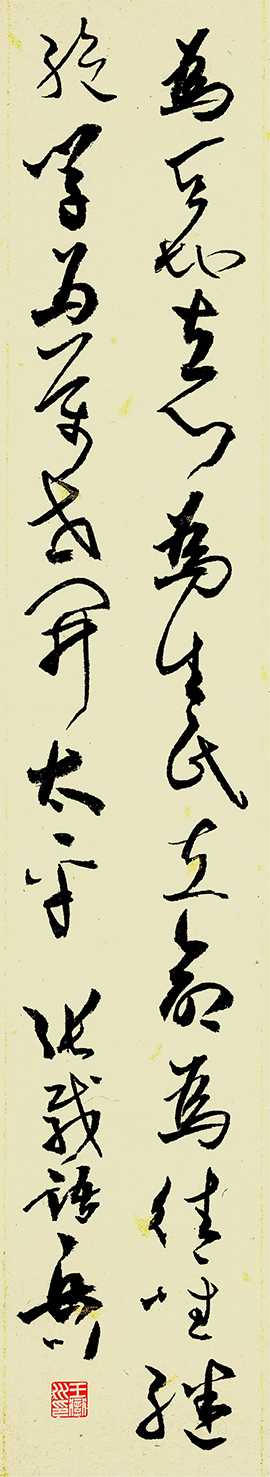 為天地立心為生民立命為往聖繼
絕學為萬世開太平 張載語 岳川